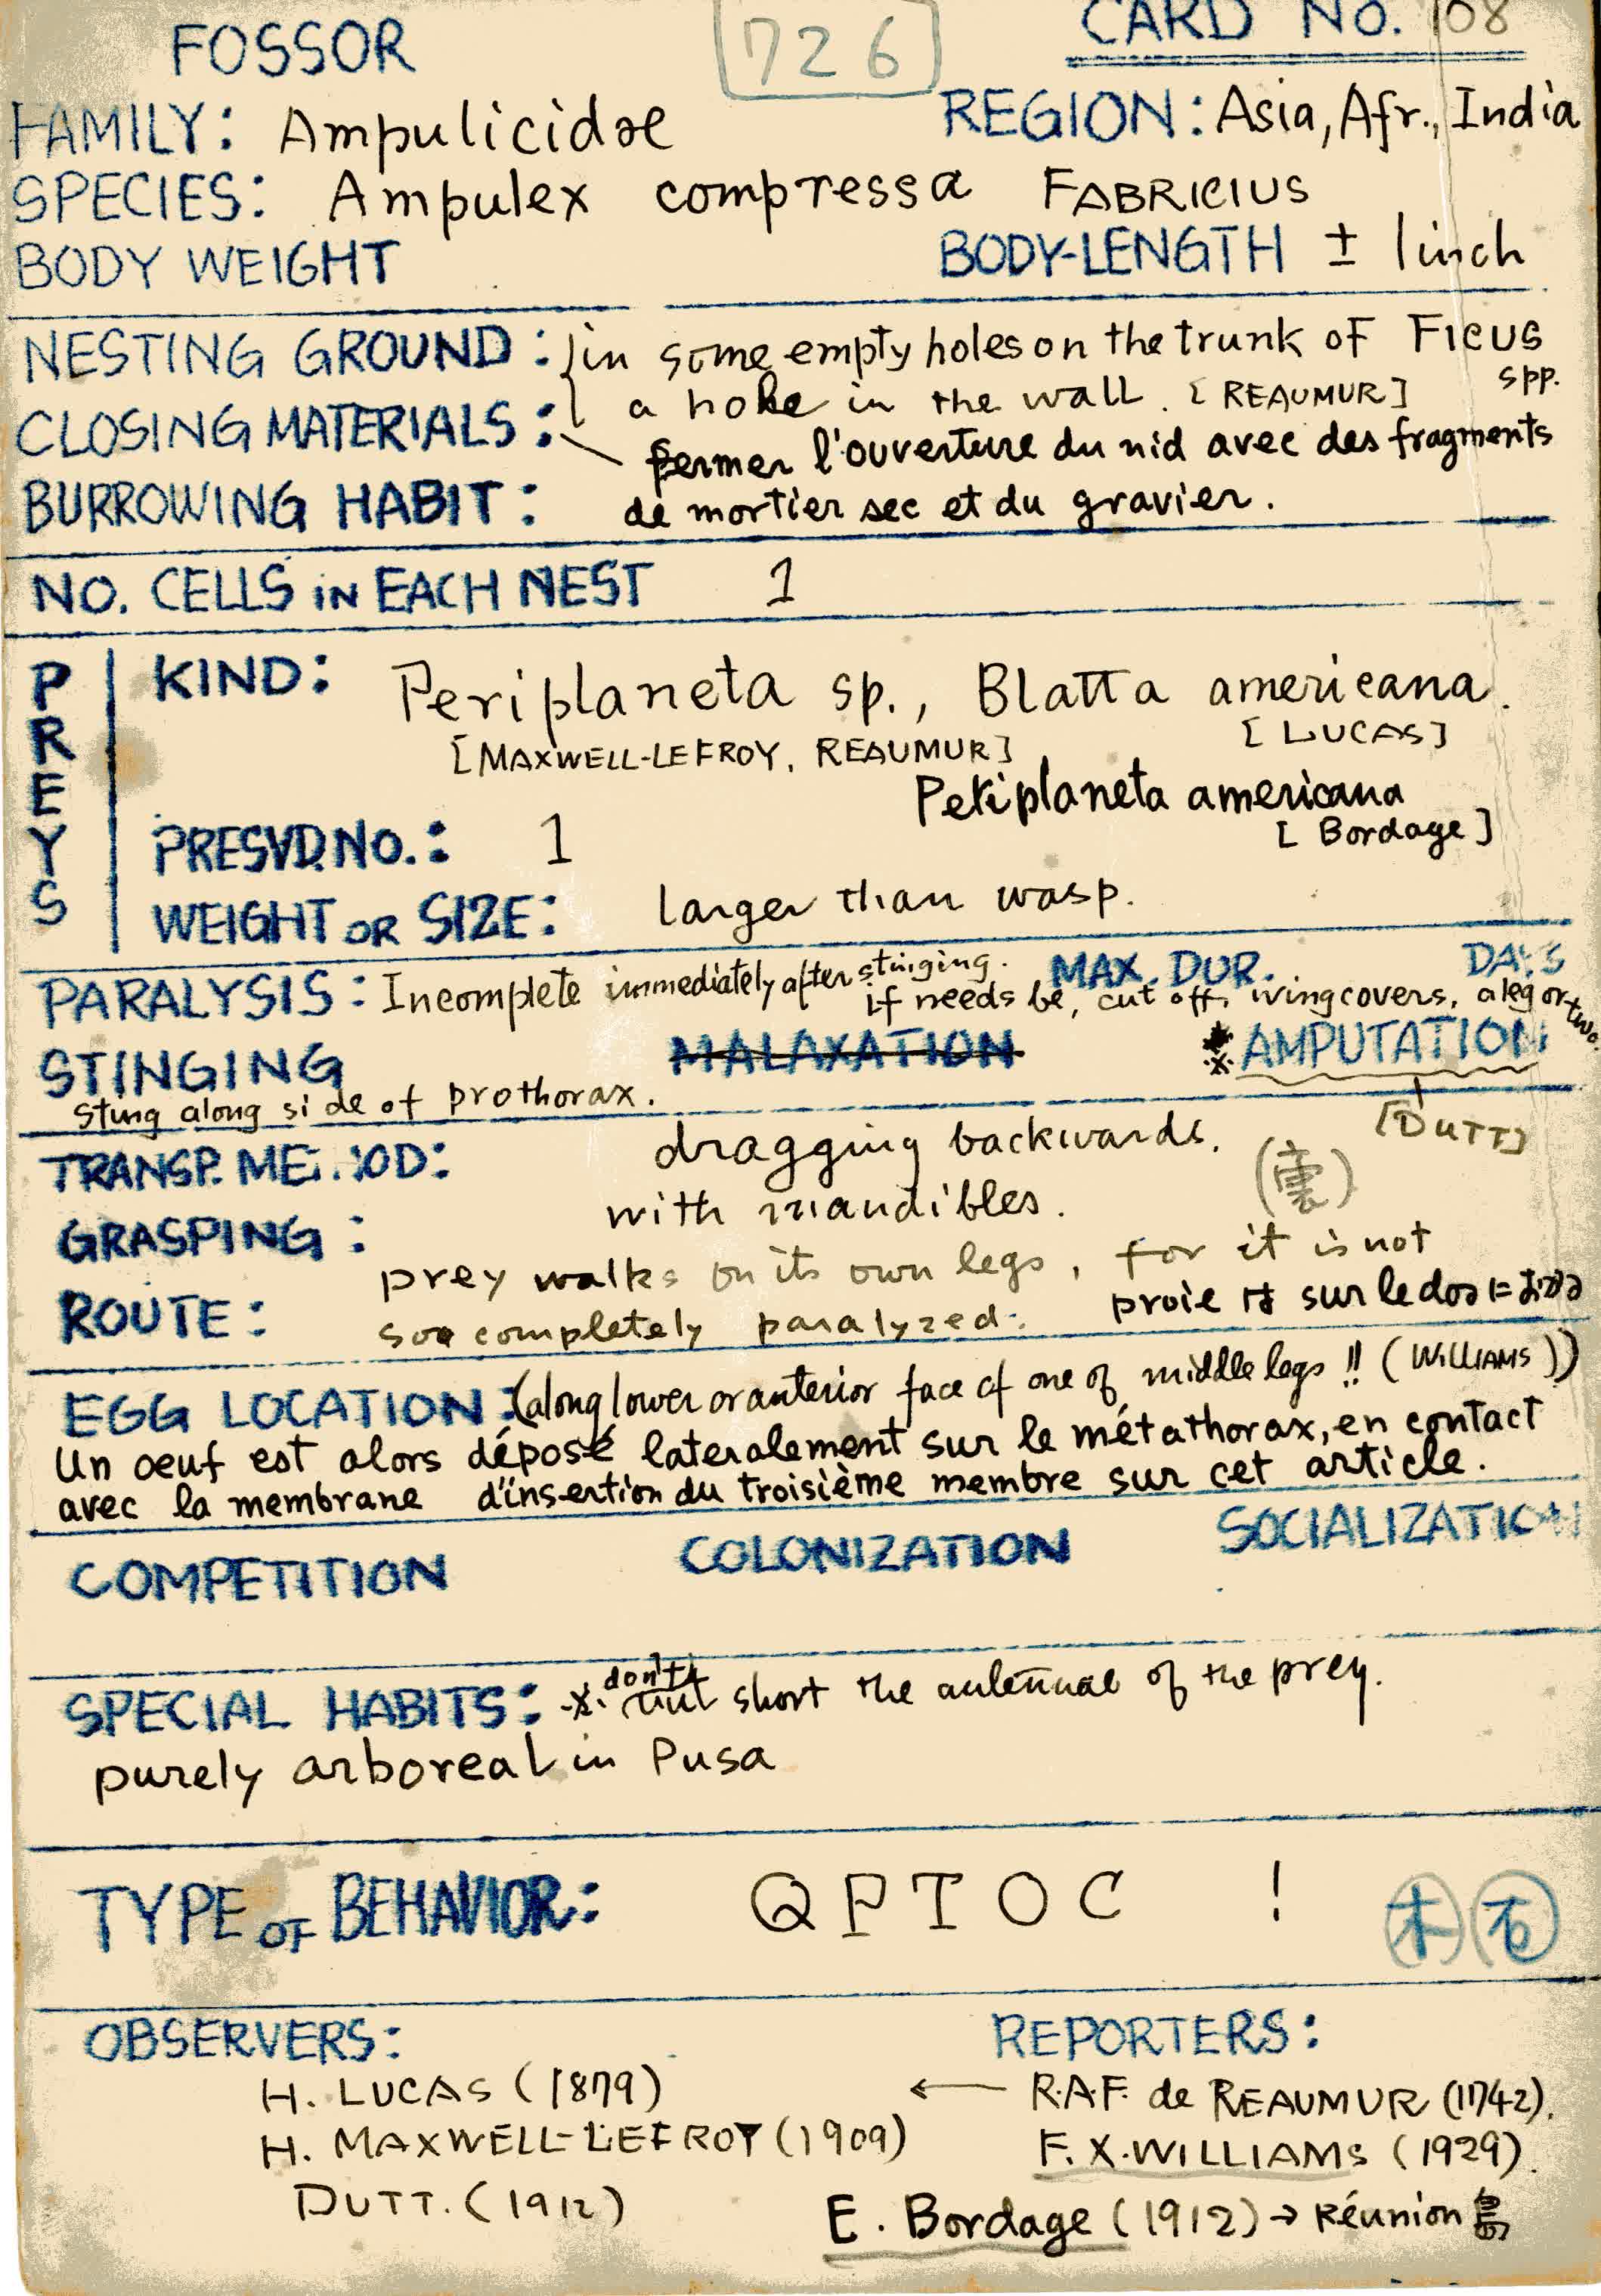 FOSSOR
726
CARD NO. 108
FAMILY: Ampulicidae
REGION: Asia, Afr., India
SPECIES: Ampulex compressa FABRICIUS
BODY WEIGHT
BODY-LENGTH ± 1 inch
NESTING GROUND: in some empty holes on the trunk of FICUS spp.
a hole in the wall. [REAUMUR]
CLOSING MATERIALS: fermer l'ouverture du nid avec des fragments
de mortier sec et du gravier.
BURROWING HABIT:
NO. CELLS IN EACH NEST 1
PREYS
KIND: Periplaneta sp., Blatta americana.
[MAXWELL-LEFROY, REAUMUR] [LUCAS]
Periplaneta americana
[Bordage]
PRESVD. NO.: 1
WEIGHT OR SIZE: larger than wasp.
PARALYSIS: Incomplete immediately after stinging. MAX. DUR. DAYS
if needs be, cut off wing covers, a leg or two.
STINGING MALAXATION AMPUTATION
sting along side of prothorax.
[DUTT]
TRANSP. METHOD: dragging backwards.
(裏)
GRASPING: with mandibles.
prey walks on its own legs, for it is not
ROUTE: so completely paralyzed. proie は sur le dos に
EGG LOCATION: (along lower or anterior face of one of middle legs !! (WILLIAMS))
Un oeuf est alors déposé lateralement sur le métathorax, en contact
avec la membrane d'insertion du troisième membre sur cet article.
COMPETITION COLONIZATION SOCIALIZATION
SPECIAL HABITS: don't cut short the antennae of the prey.
purely arboreal in Pusa
TYPE OF BEHAVIOR: QPTOC ! 木 石
OBSERVERS: REPORTERS:
H. LUCAS (1879) ← R.A.F. de REAUMUR (1742).
H. MAXWELL-LEFROY (1909) F. X. WILLIAMS (1929).
DUTT. (1912)
E. Bordage (1912) → Réunion 島